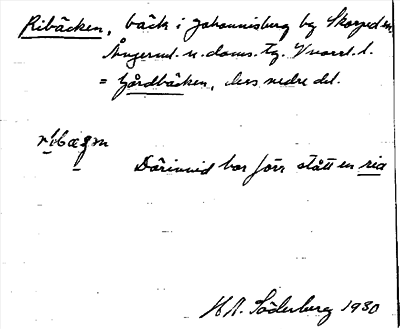 Ribäcken, bäck i Johannisberg by Skorped sn
Ångerml. n. doms. tg. Vnorrl. l.
= Gårdbäcken, dess nedre del.
Därinvid har förr stått en ria
H. A. Söderberg 1930